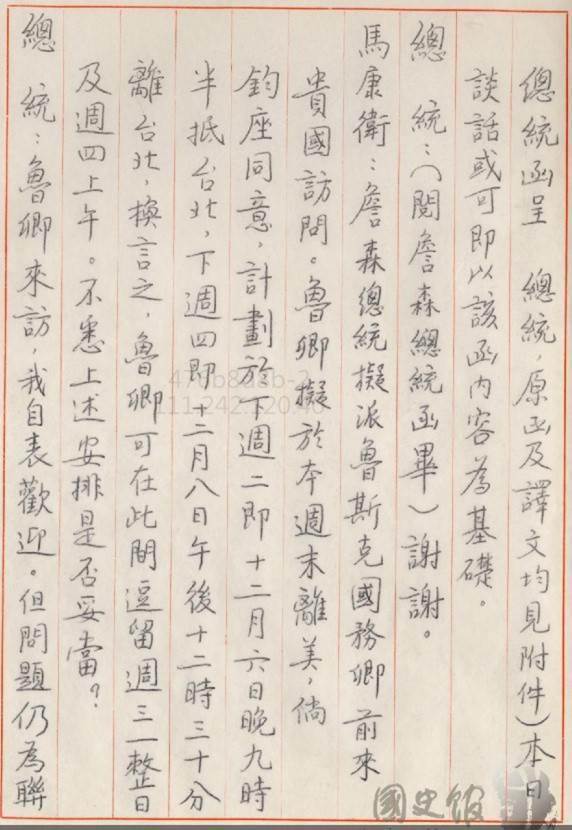 總統函呈　總統，原函及譯文均見附件）本日
談話或可即以該函內容為基礎。
總　統：（閱詹森總統函畢）謝謝。
馬康衛：詹森總統擬派魯斯克國務卿前來
貴國訪問。魯卿擬於本週末離美，倘
鈞座同意，計劃於下週二即十二月六日晚九時
半抵台北，下週四即十二月八日午後十二時三十分
離台北，換言之，魯卿可在此間逗留週三一整日
及週四上午。不悉上述安排是否妥當？
總　統：魯卿來訪，我自表歡迎。但問題仍為聯
國史館